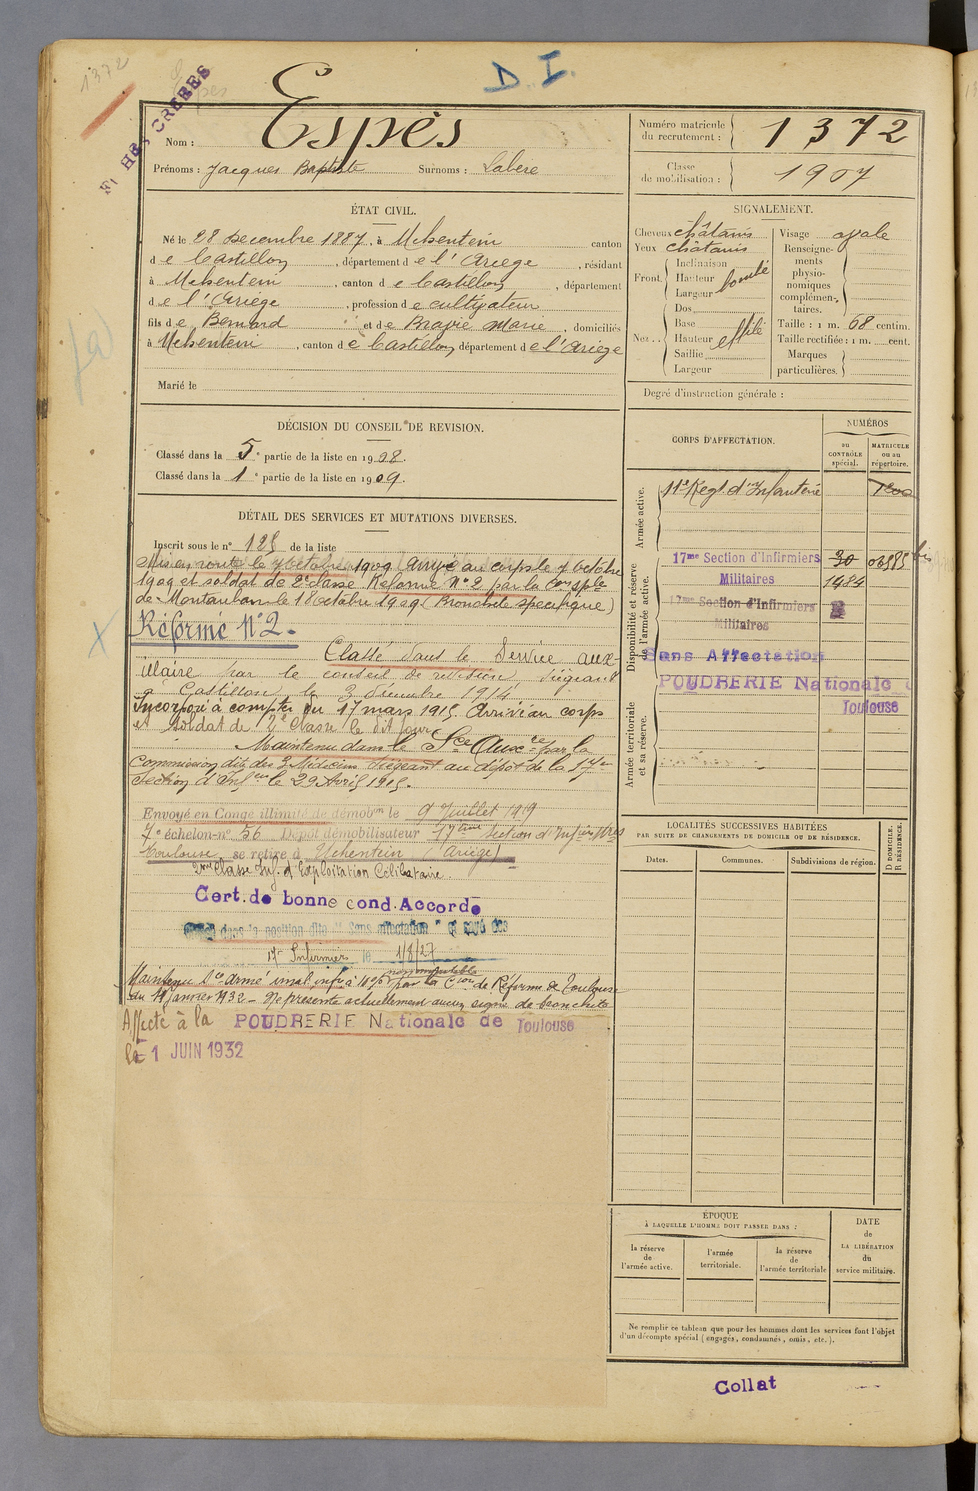 1372
D. I.
FICHES CREEES
Nom : Espès
Prénoms : Jacques Baptiste Surnoms : Labère
Numéro matricule du recrutement : 1372
Classe de mobilisation : 1907
ÉTAT CIVIL.
Né le 28 Decembre 1887, à Uchentein canton
de Castillon, département de l'Ariège, résidant
à Uchentein, canton de Castillon, département
de l'Ariège, profession de cultivateur
fils de Bernard et de Marie, domiciliés
à Uchentein, canton de Castillon département de l'Ariège
Marié le
SIGNALEMENT.
Cheveux châtains
Yeux châtains
Front
Inclinaison
Hauteur
Largeur
bombé
Nez
Dos
Base
Hauteur effilé
Saillie
Largeur
Visage ovale
Renseignements physionomiques complémentaires.
Taille : 1 m. 68 centim.
Taille rectifiée : 1 m. cent.
Marques particulières.
Degré d'instruction générale :
DÉCISION DU CONSEIL DE REVISION.
Classé dans la 5e partie de la liste en 1908.
Classé dans la 1e partie de la liste en 1909.
DÉTAIL DES SERVICES ET MUTATIONS DIVERSES.
Inscrit sous le n° 125 de la liste
Mis en route le 7 octobre 1909. Arrivé au corps le 7 octobre
1909 et soldat de 2e classe. Réformé N°2 par la Con sple
de Montauban le 18 octobre 1909 (Bronchite spécifique)
Réforme N°2.
Classé dans le Service aux-
iliaire par le conseil de revision siégeant
à Castillon le 3 décembre 1914
Incorporé à compter du 17 mars 1915. Arrivé au corps
et soldat de 2e classe le dit jour
Maintenu dans le Sce Auxre par la
Commission dite des 3 Médecins siégeant au dépôt de la 17e
Section d'Infers le 29 Avril 1915.
Envoyé en Congé illimité de démobon le 9 Juillet 1919
7e échelon n° 56 Dépôt démobilisateur 17ème Section d'Infiers Mres
Toulouse se retire à Uchentein (Ariège)
Cert. de bonne cond. Accordé
dans la position dite "Sans affectation" et rayé des
17e Infirmiers le 1/8/27
Maintenu Sce armé inval. infre à 10% non imputable par la Cion de Réforme de Toulouse
du 19 janvier 1932 - Ne présente actuellement aucun signe de bronchite
Affecté à la POUDRERIE Nationale de Toulouse
le 1 JUIN 1932
CORPS D'AFFECTATION.
NUMÉROS
au CONTRÔLE spécial.
MATRICULE ou au répertoire.
Armée active.
11e Regt d'Infanterie
Disponibilité et réserve de l'armée active.
17me Section d'Infirmiers 30 03585 bis
Militaires 1484
17me Section d'Infirmiers
Militaires
Sans Affectation
Armée territoriale et sa réserve.
POUDRERIE Nationale
Toulouse
LOCALITÉS SUCCESSIVES HABITÉES
PAR SUITE DE CHANGEMENTS DE DOMICILE OU DE RÉSIDENCE.
Dates.
Communes.
Subdivisions de région.
D DOMICILE.
R RÉSIDENCE.
ÉPOQUE
À LAQUELLE L'HOMME DOIT PASSER DANS :
la réserve de l'armée active.
l'armée territoriale.
la réserve de l'armée territoriale
DATE de LA LIBÉRATION du service militaire.
Ne remplir ce tableau que pour les hommes dont les services font l'objet
d'un décompte spécial (engagés, condamnés, omis, etc.).
Collat